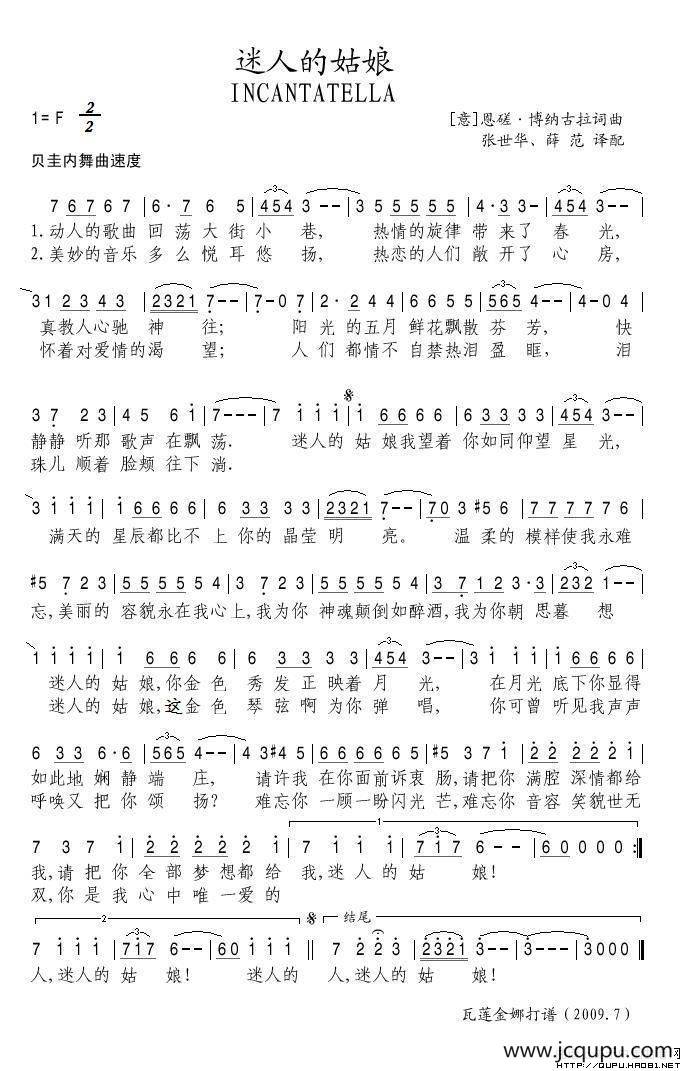 迷人的姑娘
INCANTATELLA
1=F 2/2
[意]恩磋·博纳古拉词曲
张世华、薛 范 译配
贝圭内舞曲速度
7 6 7 6 7 | 6· 7 6 5 | 4 5 4 3 – – | 3 5 5 5 5 5 | 4·3 3 – | 4 5 4 3 – – |
1.动人的歌曲 回 荡 大 街 小 巷, 热情的旋律 带 来 了 春 光,
2.美妙的音乐 多 么 悦 耳 悠 扬, 热恋的人们 敞 开 了 心 房,
3 1 2 3 4 3 | 2 3 2 1 7 – – | 7 – 0 7 | 2· 2 4 4 | 6 6 5 6 6 5 | 5 6 5 4 – – | 4 – 0 4 |
真教人心驰 神 往; 阳 光 的 五 月 鲜花飘散 芬 芳, 快
怀着对爱情的渴 望; 人 们 都 情不 自禁热泪 盈 眶, 泪
3 7 2 3 | 4 5 6 1 | 7 – – – | 7 1 1 1 | 1 6 6 6 6 | 6 3 3 3 3 | 4 5 4 3 – – |
静静 听那 歌声 在飘 荡. 迷人的 姑 娘我望着 你如同仰望 星 光,
珠儿 顺着 脸颊 往下 淌.
3 1 1 1 | 1 6 6 6 6 | 6 3 3 3 3 | 2 3 2 1 7 – – | 7 0 3 #5 6 | 7 7 7 7 7 6 |
满天的 星辰都比不 上 你的 晶莹 明 亮。 温 柔的 模样使我永难
#5 7 2 3 | 5 5 5 5 5 4 | 3 7 2 3 | 5 5 5 5 5 4 | 3 7 1 2 3·3 | 2 3 2 1 – – |
忘,美丽的 容貌永在我心上,我为你 神魂颠倒如醉酒,我为你朝 思暮 想
1 1 1 1 | 1 6 6 6 | 6 3 3 3 3 | 4 5 4 3 – – | 3 1 1 1 | 1 6 6 6 6 |
迷人的 姑 娘,你金色 秀 发 正 映着 月 光, 在月光 底下你显得
迷人的 姑 娘,这金色 琴 弦 啊 为你 弹 唱, 你可曾 听见我声声
6 3 3 6·6 | 5 6 5 4 – – | 4 3 #4 5 | 6 6 6 6 6 6 | #5 3 7 1 | 2 2 2 2 2 |
如此地 娴静 端 庄, 请许我 在你面前诉衷 肠,请把你 满腔 深情都给
呼唤又 把你 颂 扬? 难忘你 一顾一盼闪光 芒,难忘你 音容 笑貌世无
7 3 7 1 | 2 2 2 2 2 | 7 1 1 1 | 7 1 7 6 – – | 6 0 0 0 0 :|
我,请 把 你 全 部 梦 想都 给 我,迷 人 的 姑 娘!
双,你 是 我 心 中 唯 一 爱 的
7 1 1 1 | 7 1 7 6 – – | 6 0 1 1 1 || 7 2 2 3 | 2 3 2 1 3 – – | 3 0 0 0 ||
结尾
人,迷人的 姑 娘! 迷人的 人,迷人的 姑 娘!
瓦莲金娜打谱(2009.7)
www.jcqupu.com
HTTP://QUPU.HAO81.NET